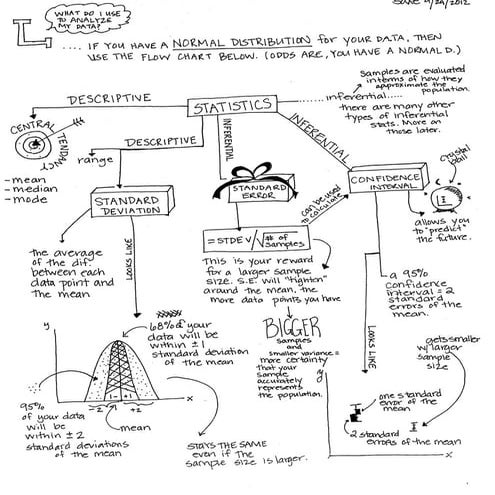 WHAT DO I USE
TO ANALYZE
MY DATA?
.... IF YOU HAVE A NORMAL DISTRIBUTION for YOUR DATA, THEN
USE THE FLOW CHART BELOW. (ODDS ARE, YOU HAVE A NORMAL D.)
DESCRIPTIVE
STATISTICS
inferential....
Samples are evaluated
in terms of how they
approximate the
population.
there are many other
types of inferential
stats. More on
those later.
CENTRAL TENDANCY
- mean
- median
- mode
DESCRIPTIVE
range
INFERENTIAL
INFERENTIAL
STANDARD
DEVIATION
STANDARD
ERROR
CONFIDENCE
INTERVAL
crystal
ball
can be used
to calculate
allows you
to "predict"
the future.
the average
of the dif.
between each
data point and
the mean
LOOKS LIKE
= STDEV/√# of samples
This is your reward
for a larger sample
size. S.E. will "tighten"
around the mean, the
more data points you have
a 95%
confidence
interval = 2
standard
errors of the
mean.
LOOKS LIKE
68% of your
data will be
within ±1
standard deviation
of the mean
BIGGER
samples
and
smaller variance =
more certainty
that your
sample
accurately
represents
the population.
gets smaller
w/ larger
sample
size
y
x
-2
1-
+1
+2
mean
95%
of your data
will be
within ±2
standard deviations
of the mean
STAYS THE SAME
even if the
sample size is larger.
y
one standard
error of the
mean
2 standard
errors of the mean
x